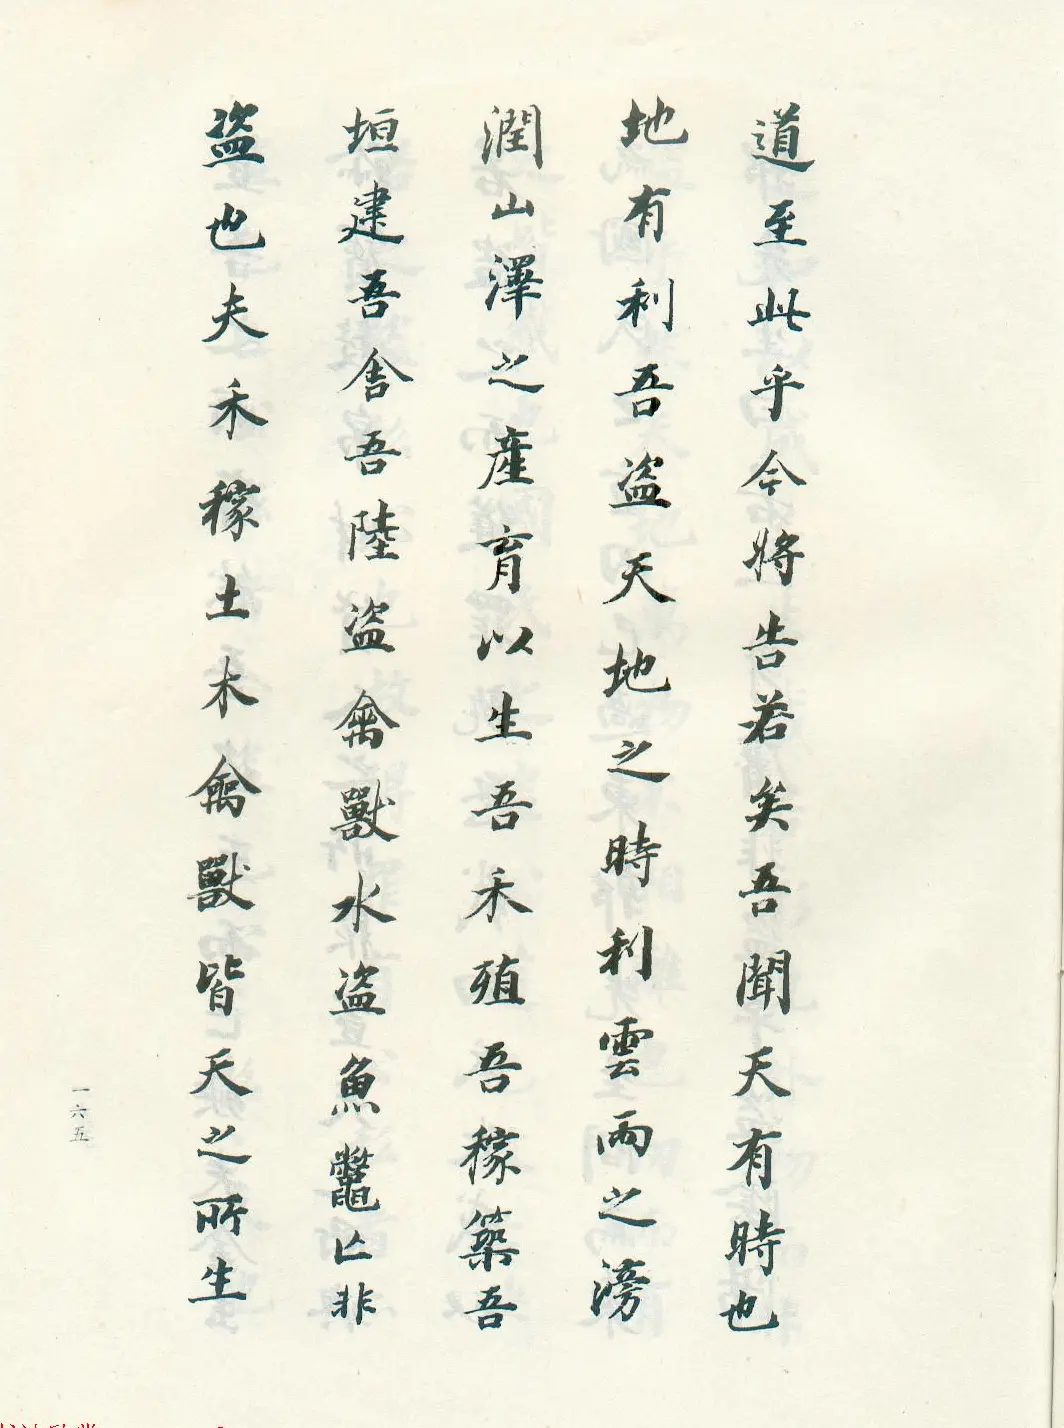 道至此乎今將告若矣吾聞天有時也
地有利吾盜天地之時利雲雨之滂
潤山澤之產育以生吾禾殖吾稼築吾
垣建吾舍吾陸盜禽獸水盜魚鼈亡非
盜也夫禾稼土木禽獸皆天之所生
一六五